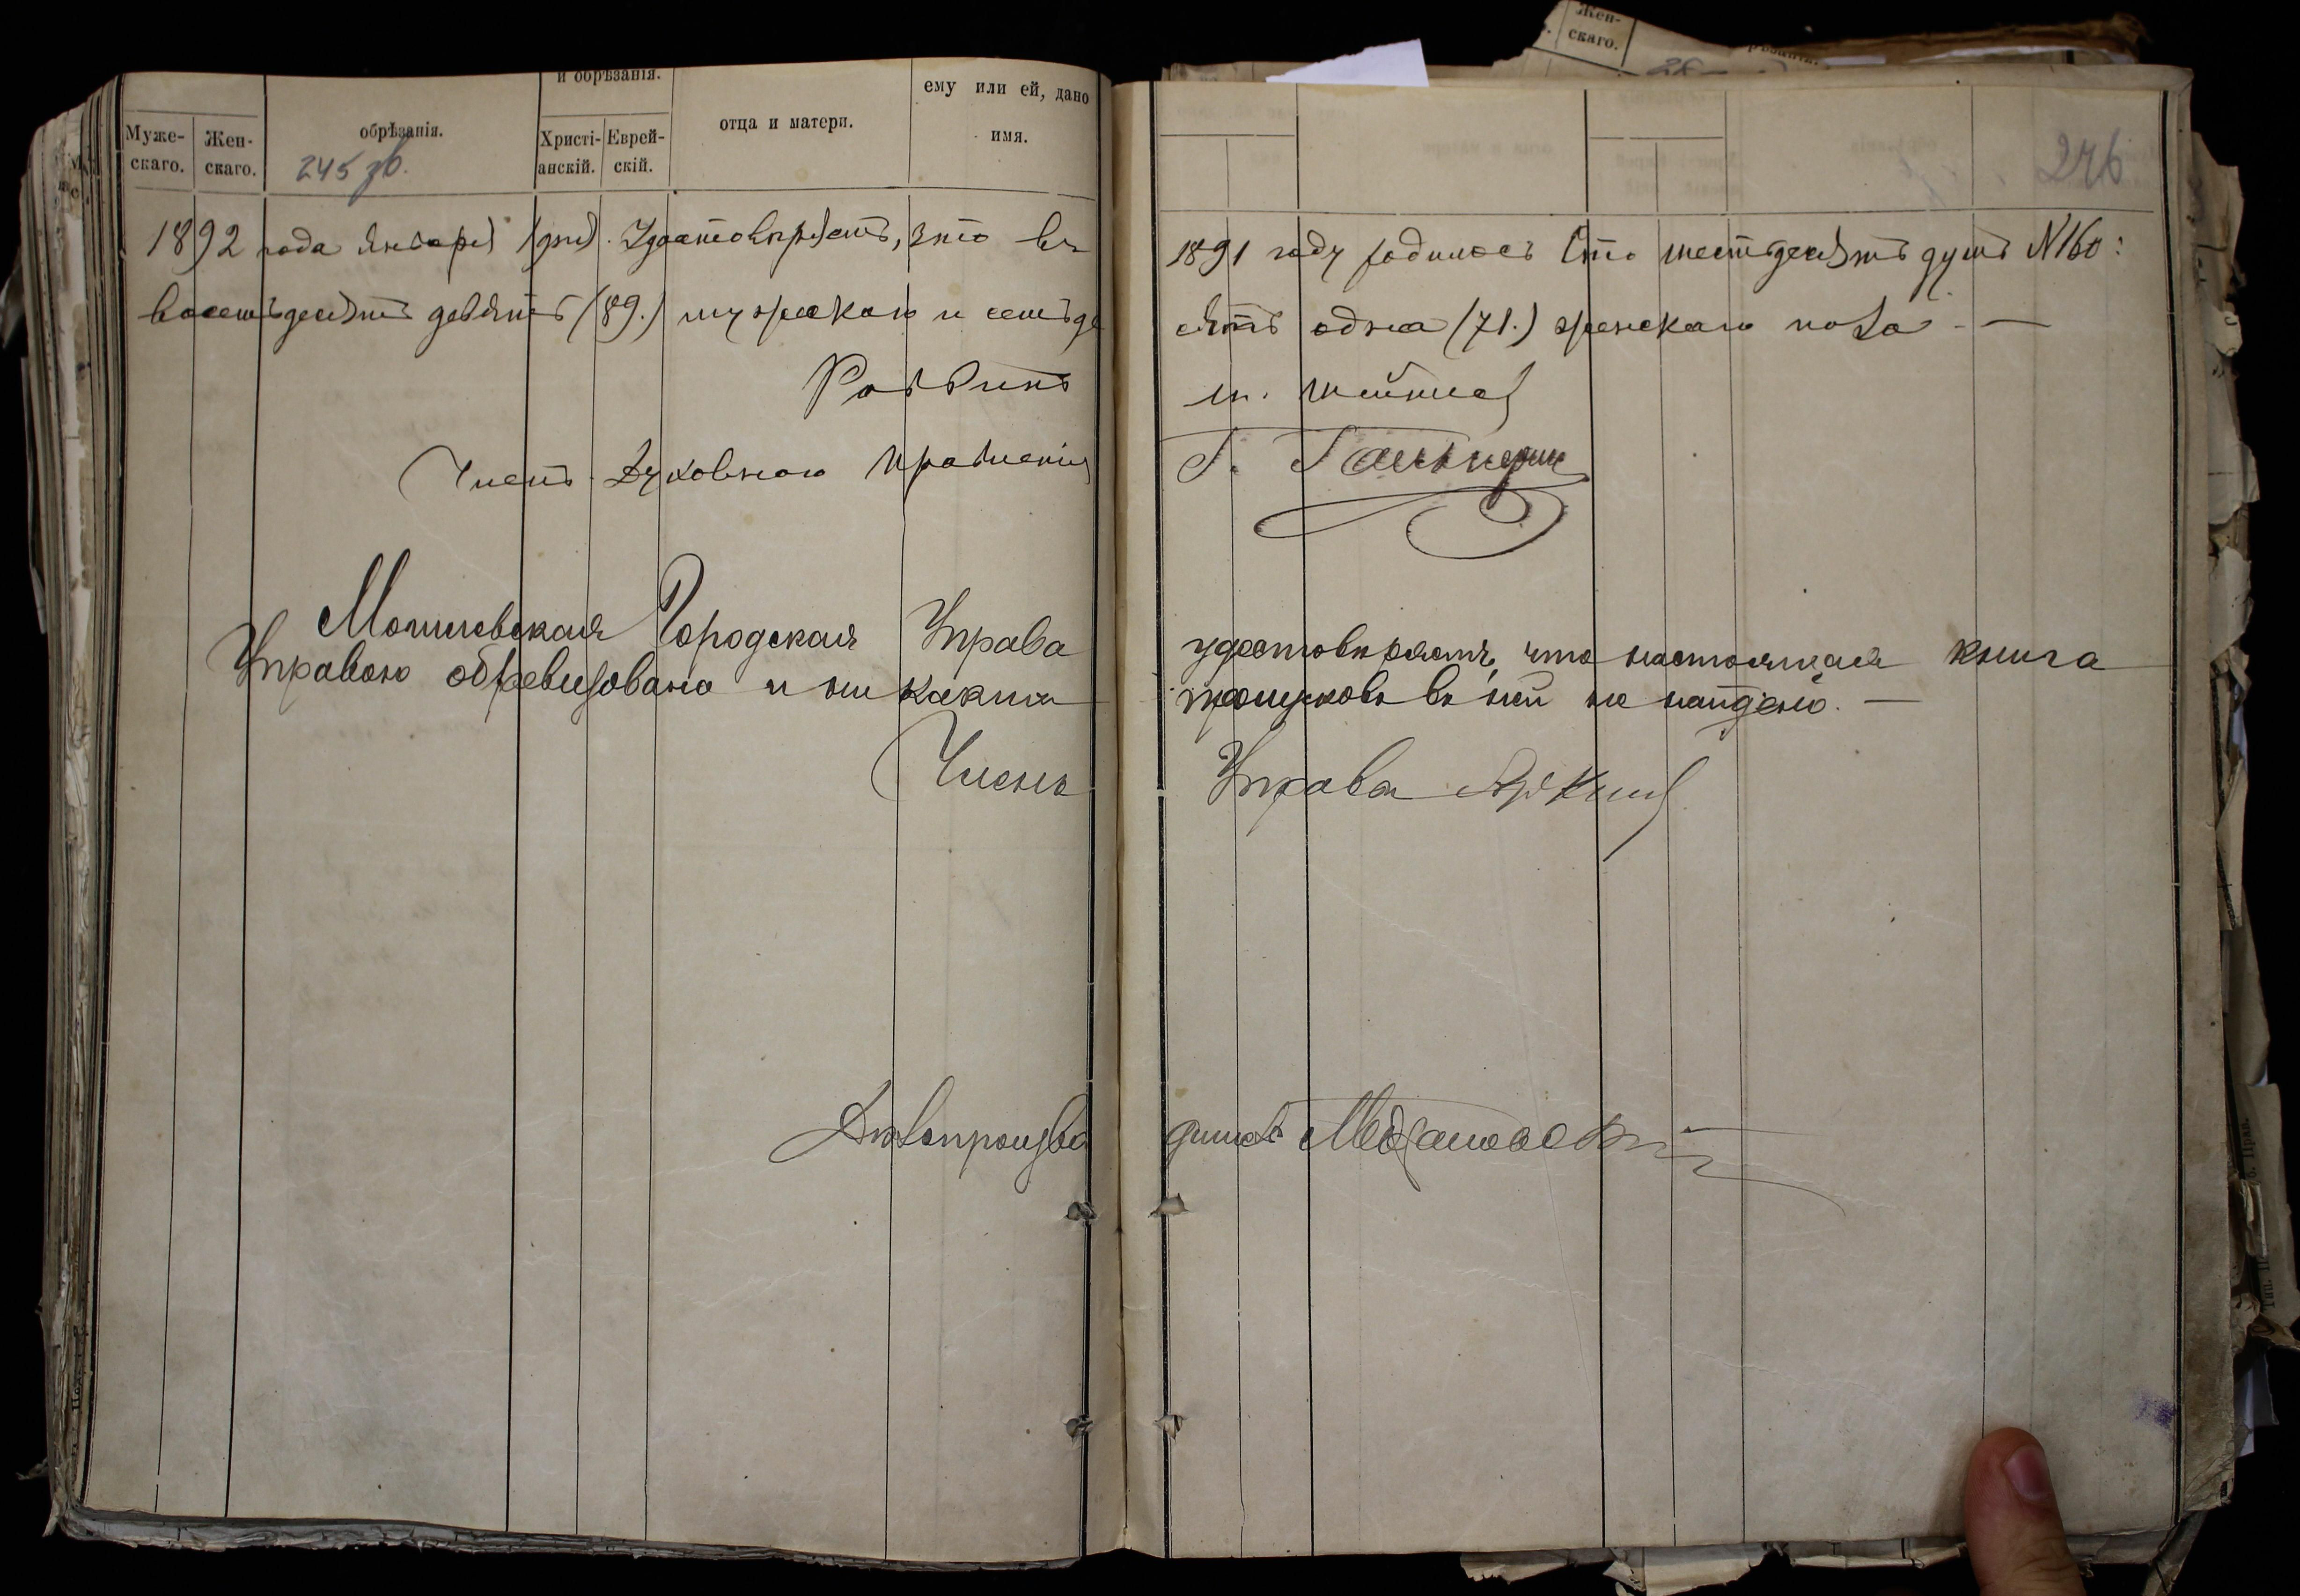 Жен-
скаго.
и обрѣзанія.
ему или ей, дано
Муже-
скаго.
Жен-
скаго.
обрѣзанія.
Христі-
анскій.
Еврей-
скій.
отца и матери.
имя.
245 зв.
246
1892 года Января дня. Удостовѣряетъ, что въ 1891 году родилось Сто шестьдесятъ душъ N160:
восемьдесятъ девять (89.) мужскаго и семьде сять одна (71.) женскаго пола —
Раввинъ м.
Членъ Духовнаго Правленія Г.
Могилевская Городская Управа удостовѣряетъ, что настоящая книга
Управою обревизована и никакихъ пропусковъ въ ней не найдено. —
Членъ Управы
Дѣлопроизво дитель